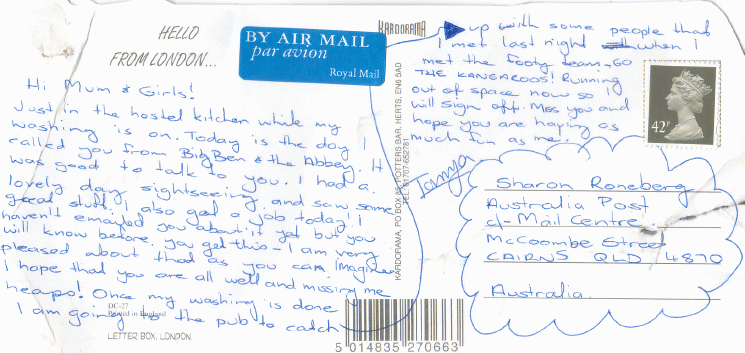 HELLO
FROM LONDON...
BY AIR MAIL
par avion
Royal Mail
Hi Mum & Girls!
Just in the hostel kitchen while my
washing is on. Today is the day I
called you from Big Ben & the Abbey. It
was good to talk to you. I had a
lovely day sightseeing and saw some
great stuff. I also got a job today! I
haven't emailed you about it yet but you
will know before you get this - I am very
pleased about that as you can imagine.
I hope that you are all well and missing me
heaps! Once my washing is done
I am going to the pub to catch
up with some people that
I met last night when I
met the footy team. GO
THE KANGAROOS! Running
out of space now so I
will sign off. Miss you and
hope you are having as
much fun as me.
Tanya
42P
Sharon Roneberg
Australia Post
c/- Mail Centre
McCoombe Street
CAIRNS QLD 4870
Australia.
KARDORAMA
KARDORAMA, PO BOX POTTERS BAR, HERTS, EN6 5AD
DC-27
Printed in England
LETTER BOX, LONDON
5 014835 270663